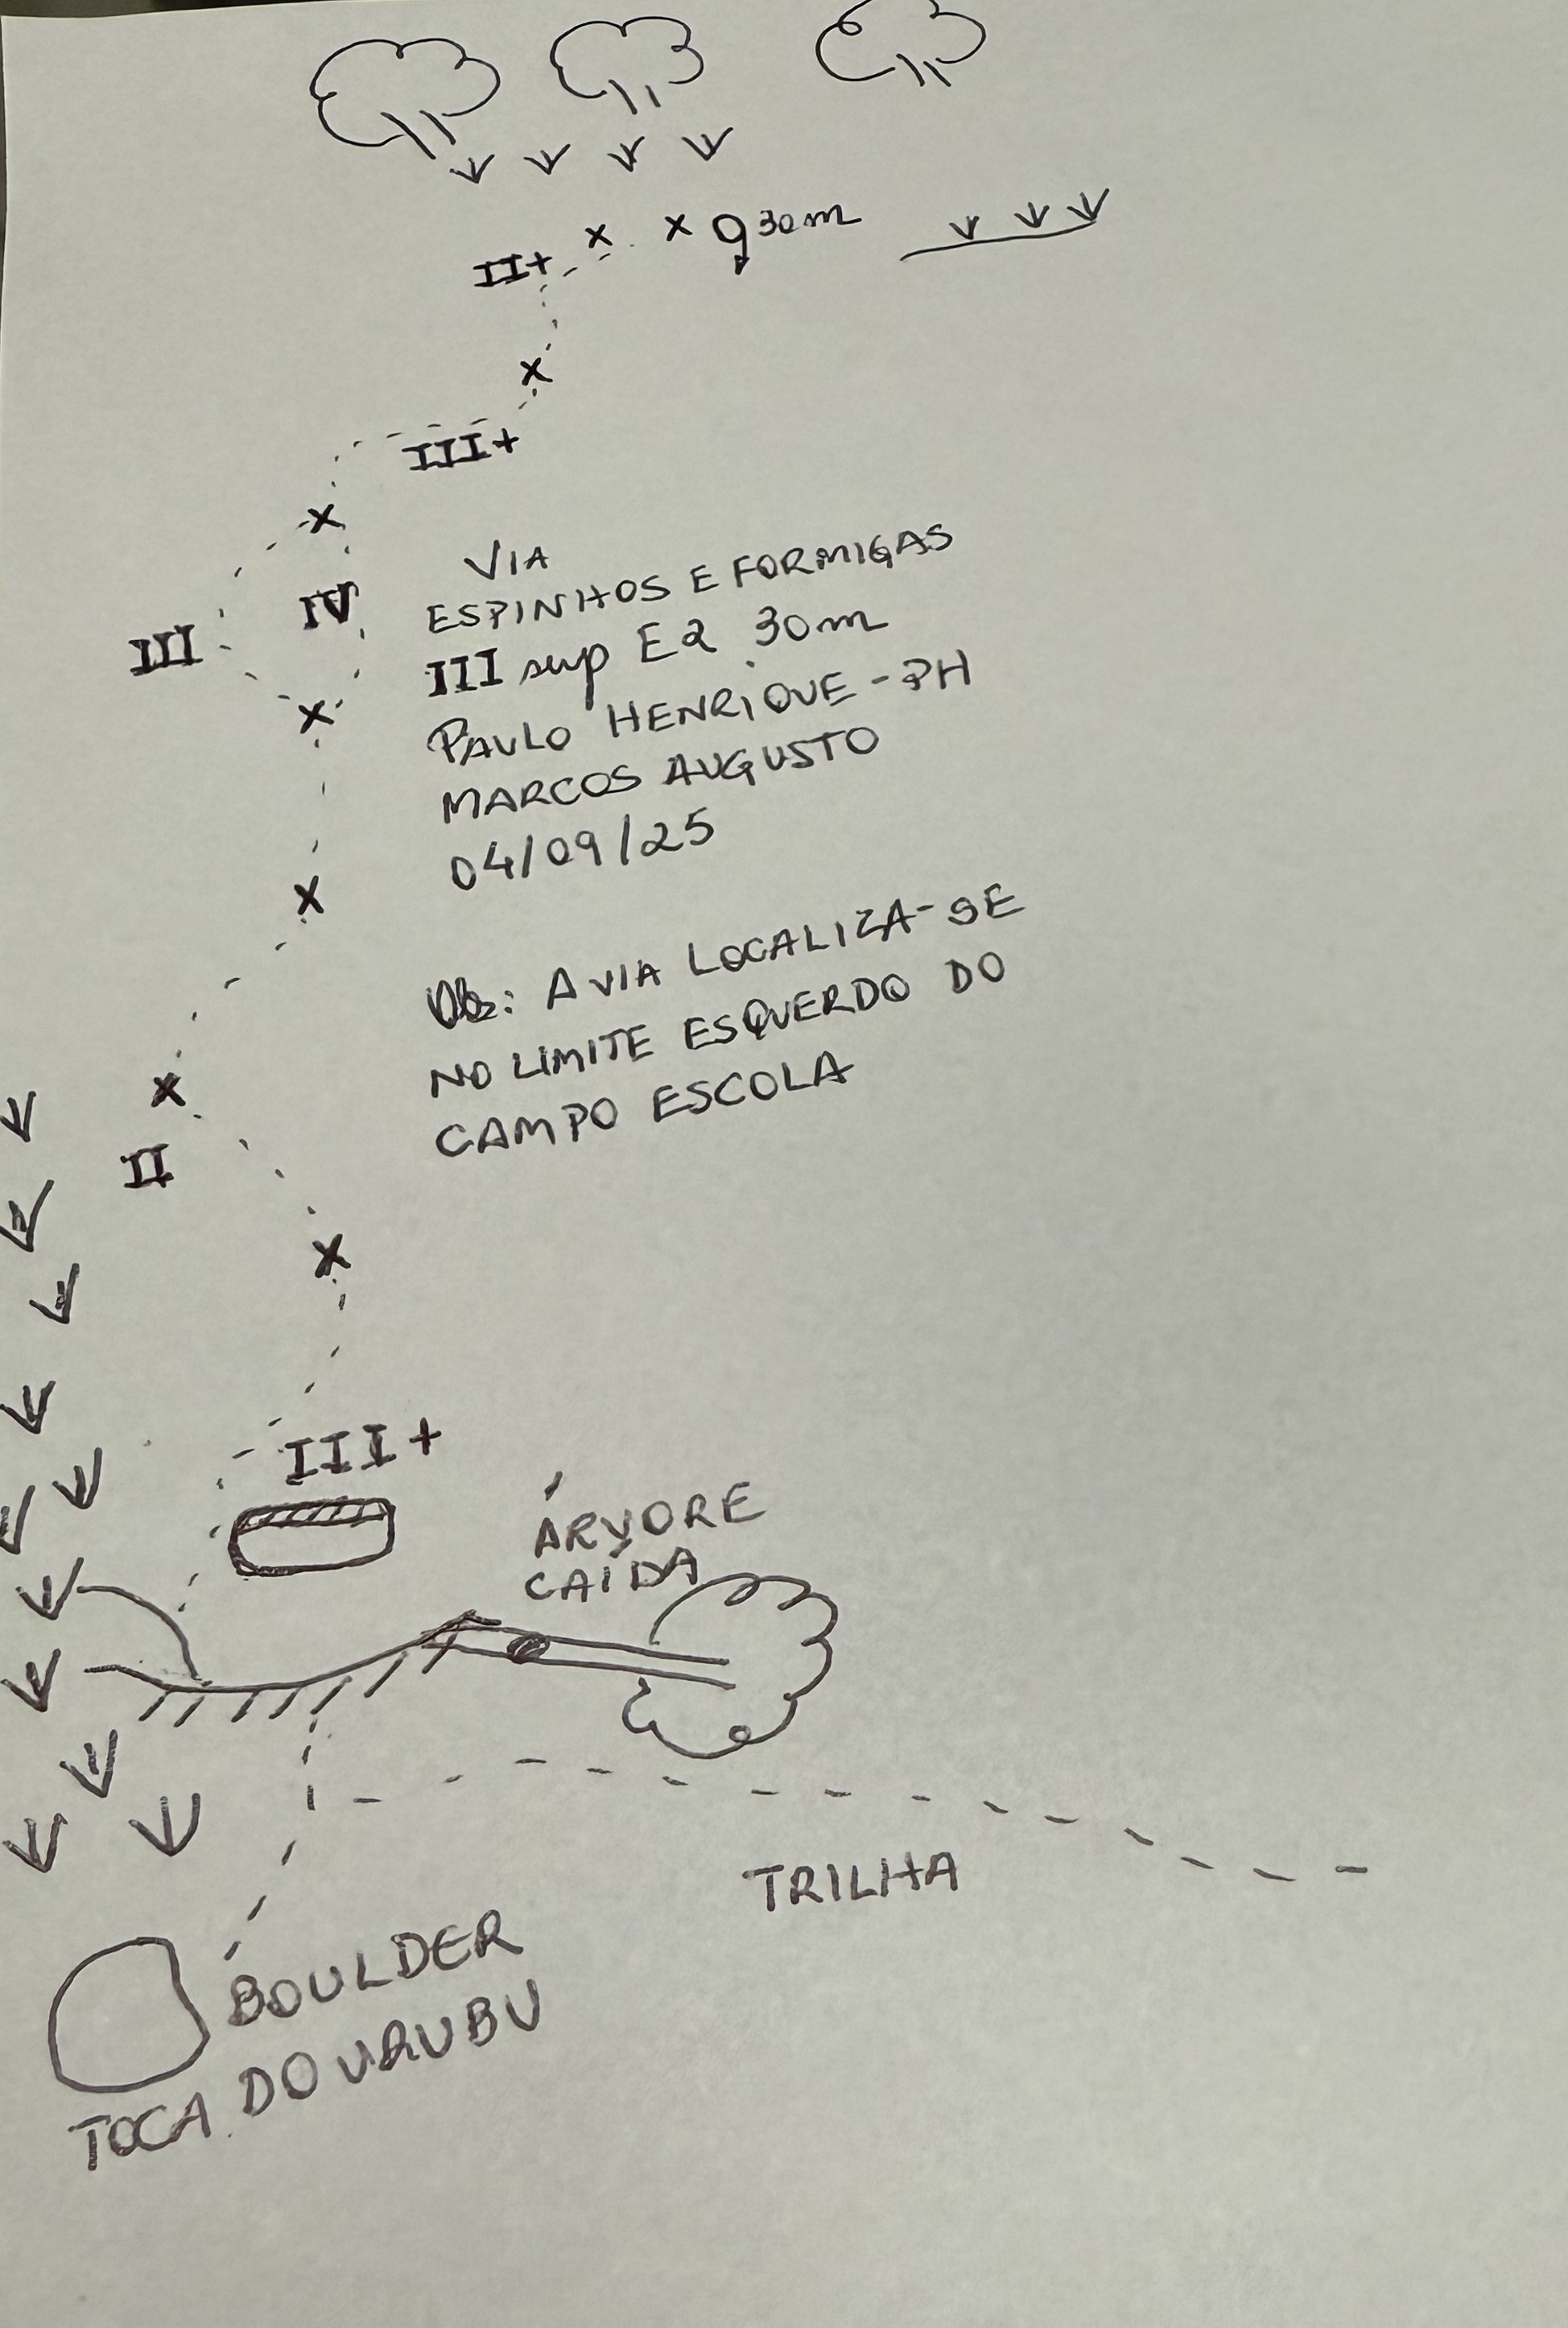 II+ x x 30m
x
III+
x
VIA
ESPINHOS E FORMIGAS
IV
III
III sup E2 30m
x
PAULO HENRIQUE - PH
MARCOS AUGUSTO
04/09/25
x
Obs: A VIA LOCALIZA-SE
NO LIMITE ESQUERDO DO
CAMPO ESCOLA
x
II
x
III+
ÁRVORE
CAÍDA
TRILHA
BOULDER
TOCA DO URUBU